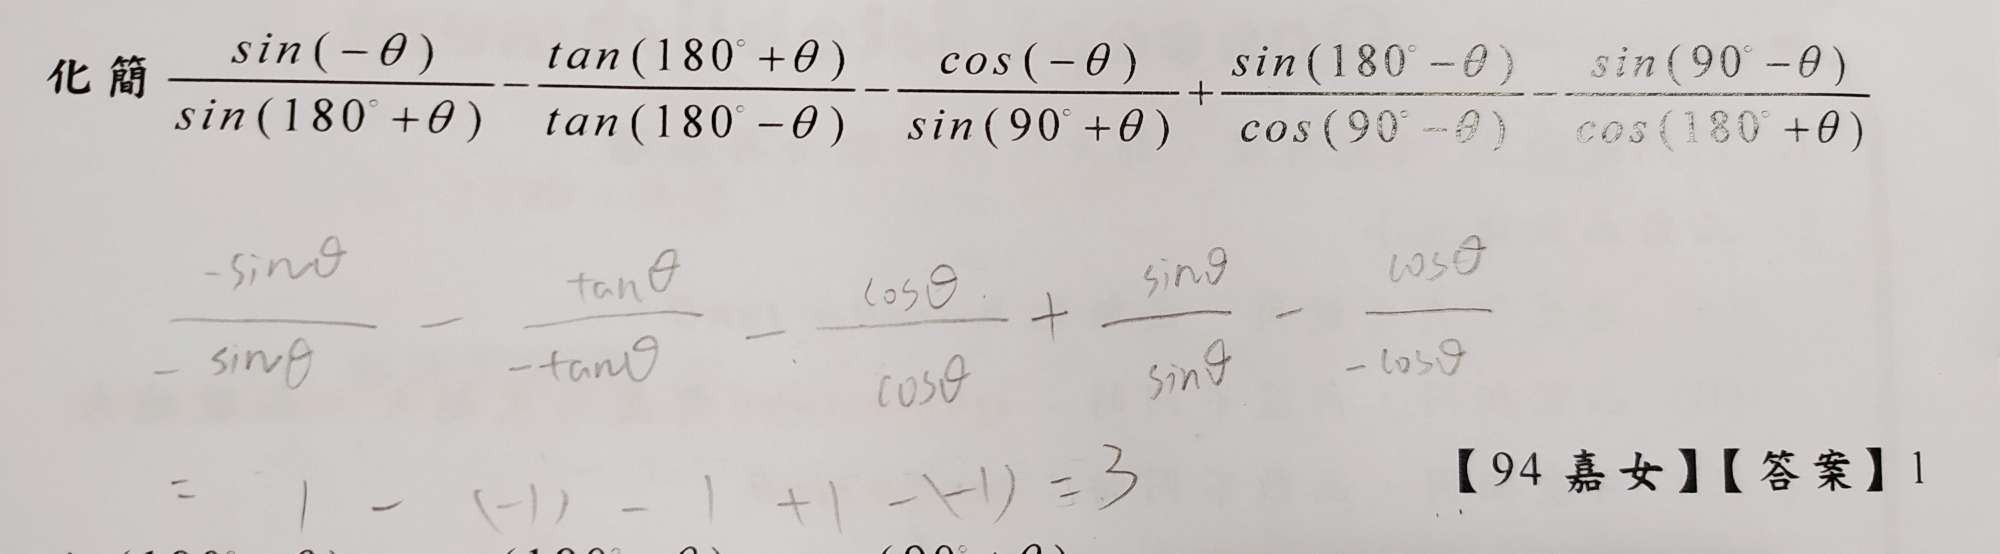 化簡 \frac{sin(-θ)}{sin(180°+θ)} - \frac{tan(180°+θ)}{tan(180°-θ)} - \frac{cos(-θ)}{sin(90°+θ)} + \frac{sin(180°-θ)}{cos(90°-θ)} - \frac{sin(90°-θ)}{cos(180°+θ)}
\frac{-sinθ}{-sinθ} - \frac{tanθ}{-tanθ} - \frac{cosθ}{cosθ} + \frac{sinθ}{sinθ} - \frac{cosθ}{-cosθ}
= 1 - (-1) - 1 + 1 - (-1) = 3
【94 嘉女】【答案】1